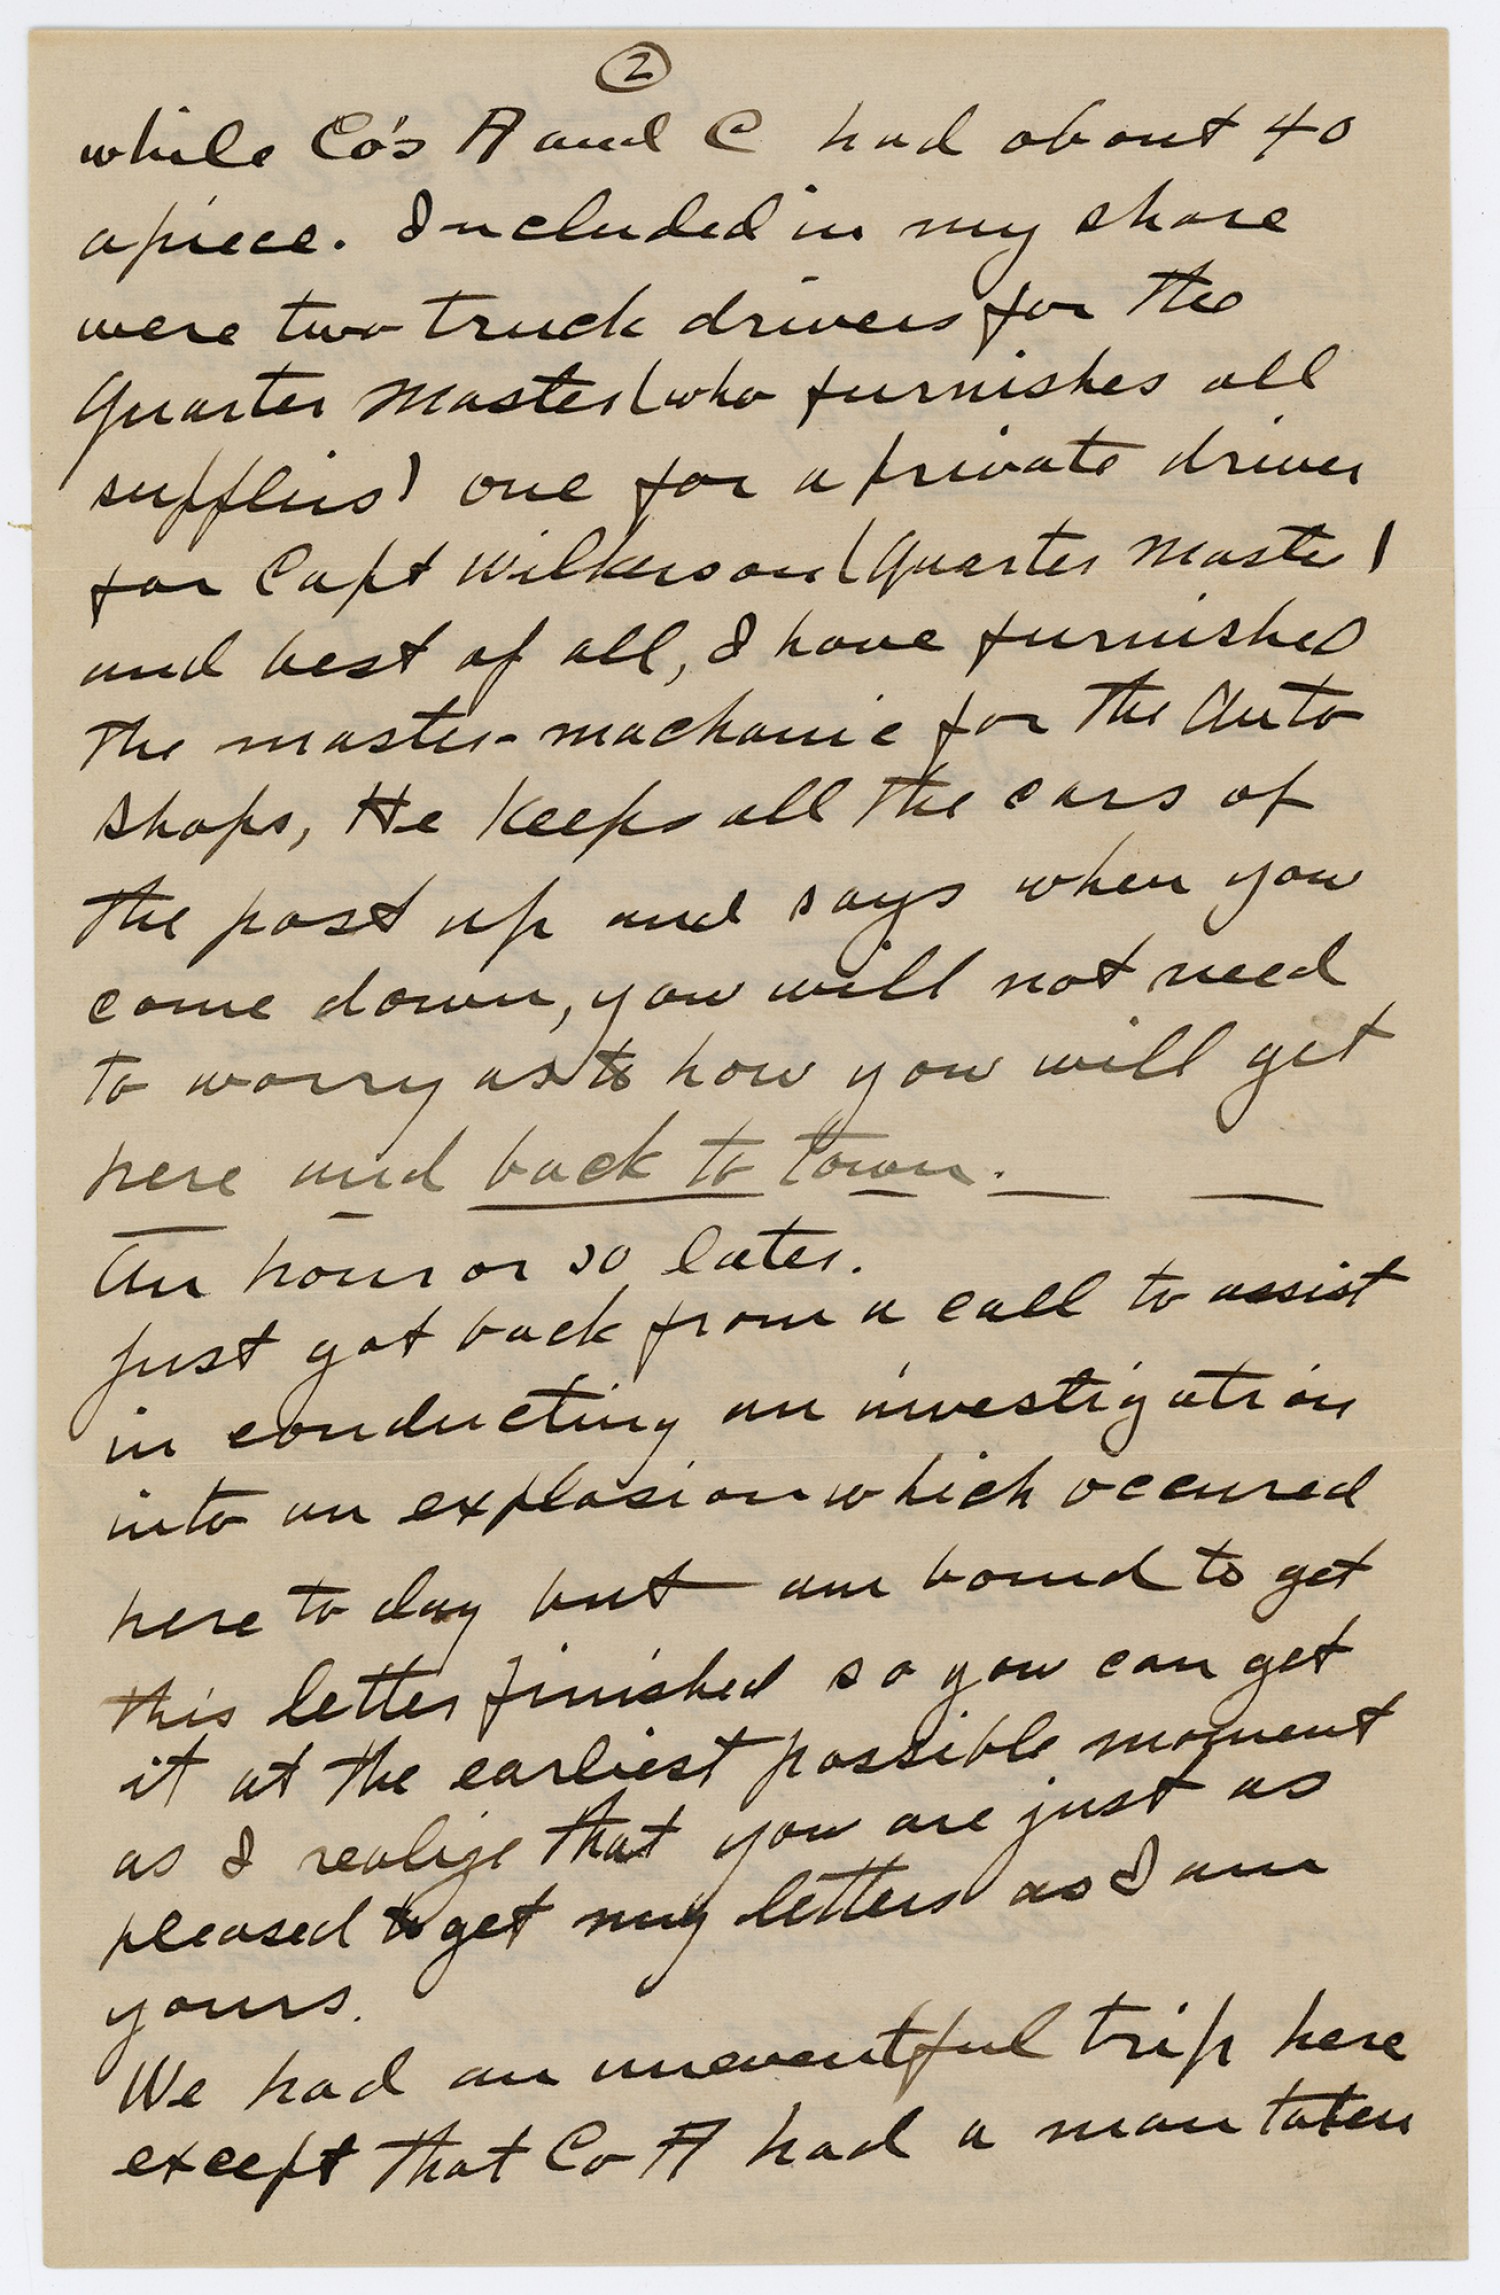 ②
while Co's A and C had about 40
apiece. Included in my share
were two truck drivers for the
Quarter Master (who furnishes all
supplies) one for a private driver
for Capt Wilkerson (Quarter Master)
and best of all, I have furnished
the master-machanic for the Auto
shops, He keeps all the cars of
the post up and says when you
come down, you will not need
to worry as to how you will get
here and back to town.
An hour or so later.
Just got back from a call to assist
in conducting an investigation
into an explosion which occured
here to day but am bound to get
this letter finished so you can get
it at the earliest possible moment
as I realize that you are just as
pleased to get my letters as I am
yours.
We had an uneventful trip here
except that Co A had a man taken